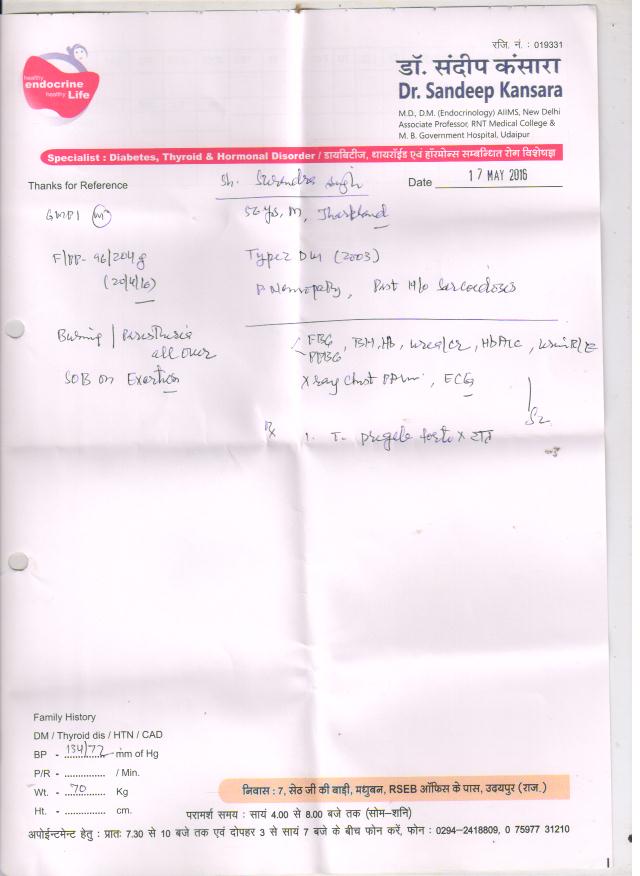 रजि. नं. : 019331
healthy
endocrine
healthy Life
डॉ. संदीप कंसारा
Dr. Sandeep Kansara
M.D., D.M. (Endocrinology) AIIMS, New Delhi
Associate Professor, RNT Medical College &
M. B. Government Hospital, Udaipur
Specialist : Diabetes, Thyroid & Hormonal Disorder / डायबिटीज, थायरॉईड एवं हॉरमोन्स सम्बन्धित रोग विशेषज्ञ
Thanks for Reference
Sh. Surendra Singh
Date 17 MAY 2016
56 yrs, M, Jharkhand
F/PP- 96/204
Type 2 DM (2003)
(20/4/16)
Past H/o Sarcoidosis
Burning / Paresthesia
all over
FBG, Hb, urea/cr, HbA1c, urine R/E
PPBG
SOB on Exertion
X ray Chest PA, ECG
Rx 1. T. forte x रात
Family History
DM / Thyroid dis / HTN / CAD
BP - 134/72 mm of Hg
P/R - ............... / Min.
Wt. - 70 Kg
Ht. - ............... cm.
निवास : 7, सेठ जी की बाड़ी, मधुबन, RSEB ऑफिस के पास, उदयपुर (राज.)
परामर्श समय : सायं 4.00 से 8.00 बजे तक (सोम–शनि)
अपोईन्टमेन्ट हेतु : प्रातः 7.30 से 10 बजे तक एवं दोपहर 3 से सायं 7 बजे के बीच फोन करें, फोन : 0294-2418809, 0 75977 31210